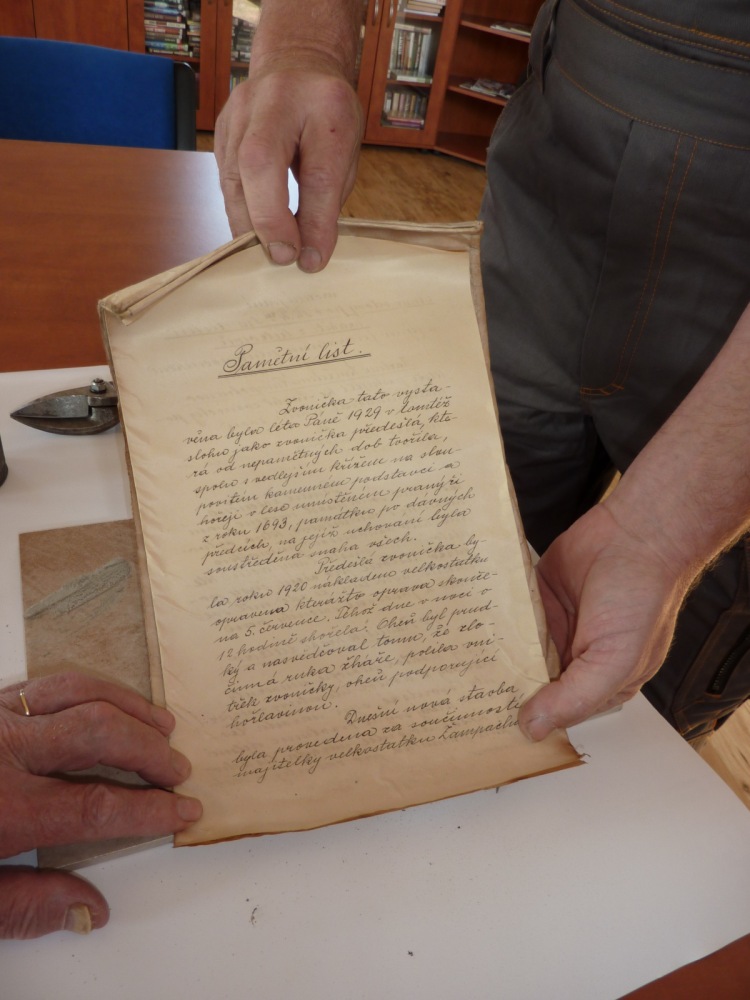 Pamětní list.
Zvonička tato vysta-
věna byla léta Páně 1929 v tomtéž
slohu jako zvonička předešlá, kte-
rá od nepamětných dob tvořila,
spolu s vedlejším křížem na slou-
povitém kamenném podstavci a
hořeji v lese umístěném pranýři
z roku 1693, památku po dávných
předcích, na jejíž uchování byla
soustředěna snaha všech.
Předešlá zvonička by-
la roku 1920 nákladem velkostatku
opravena kterážto oprava skonče-
na 5. července. Téhož dne v noci v
12 hodině shořela! Oheň byl prud-
ký a nasvědčoval tomu, že zlo-
činná ruka žháře, polila vni-
třek zvoničky, oheň podporující
hořlavinou.
Dnešní nová stavba
byla provedena za součinnosti
majitelky velkostatku Žampachu